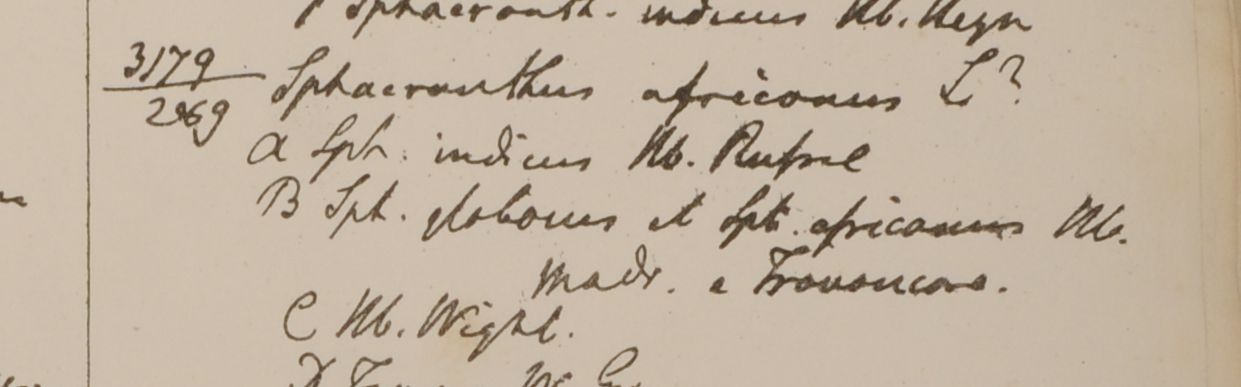 Sphaeranth. indicus Hb. Heyn
3179 Sphaeranthus africanus L?
2969
a Sph. indicus Hb. Russel
B Sph. globosus et Sph. africanus Hb.
Madr. e Travancore.
C Hb. Wight.